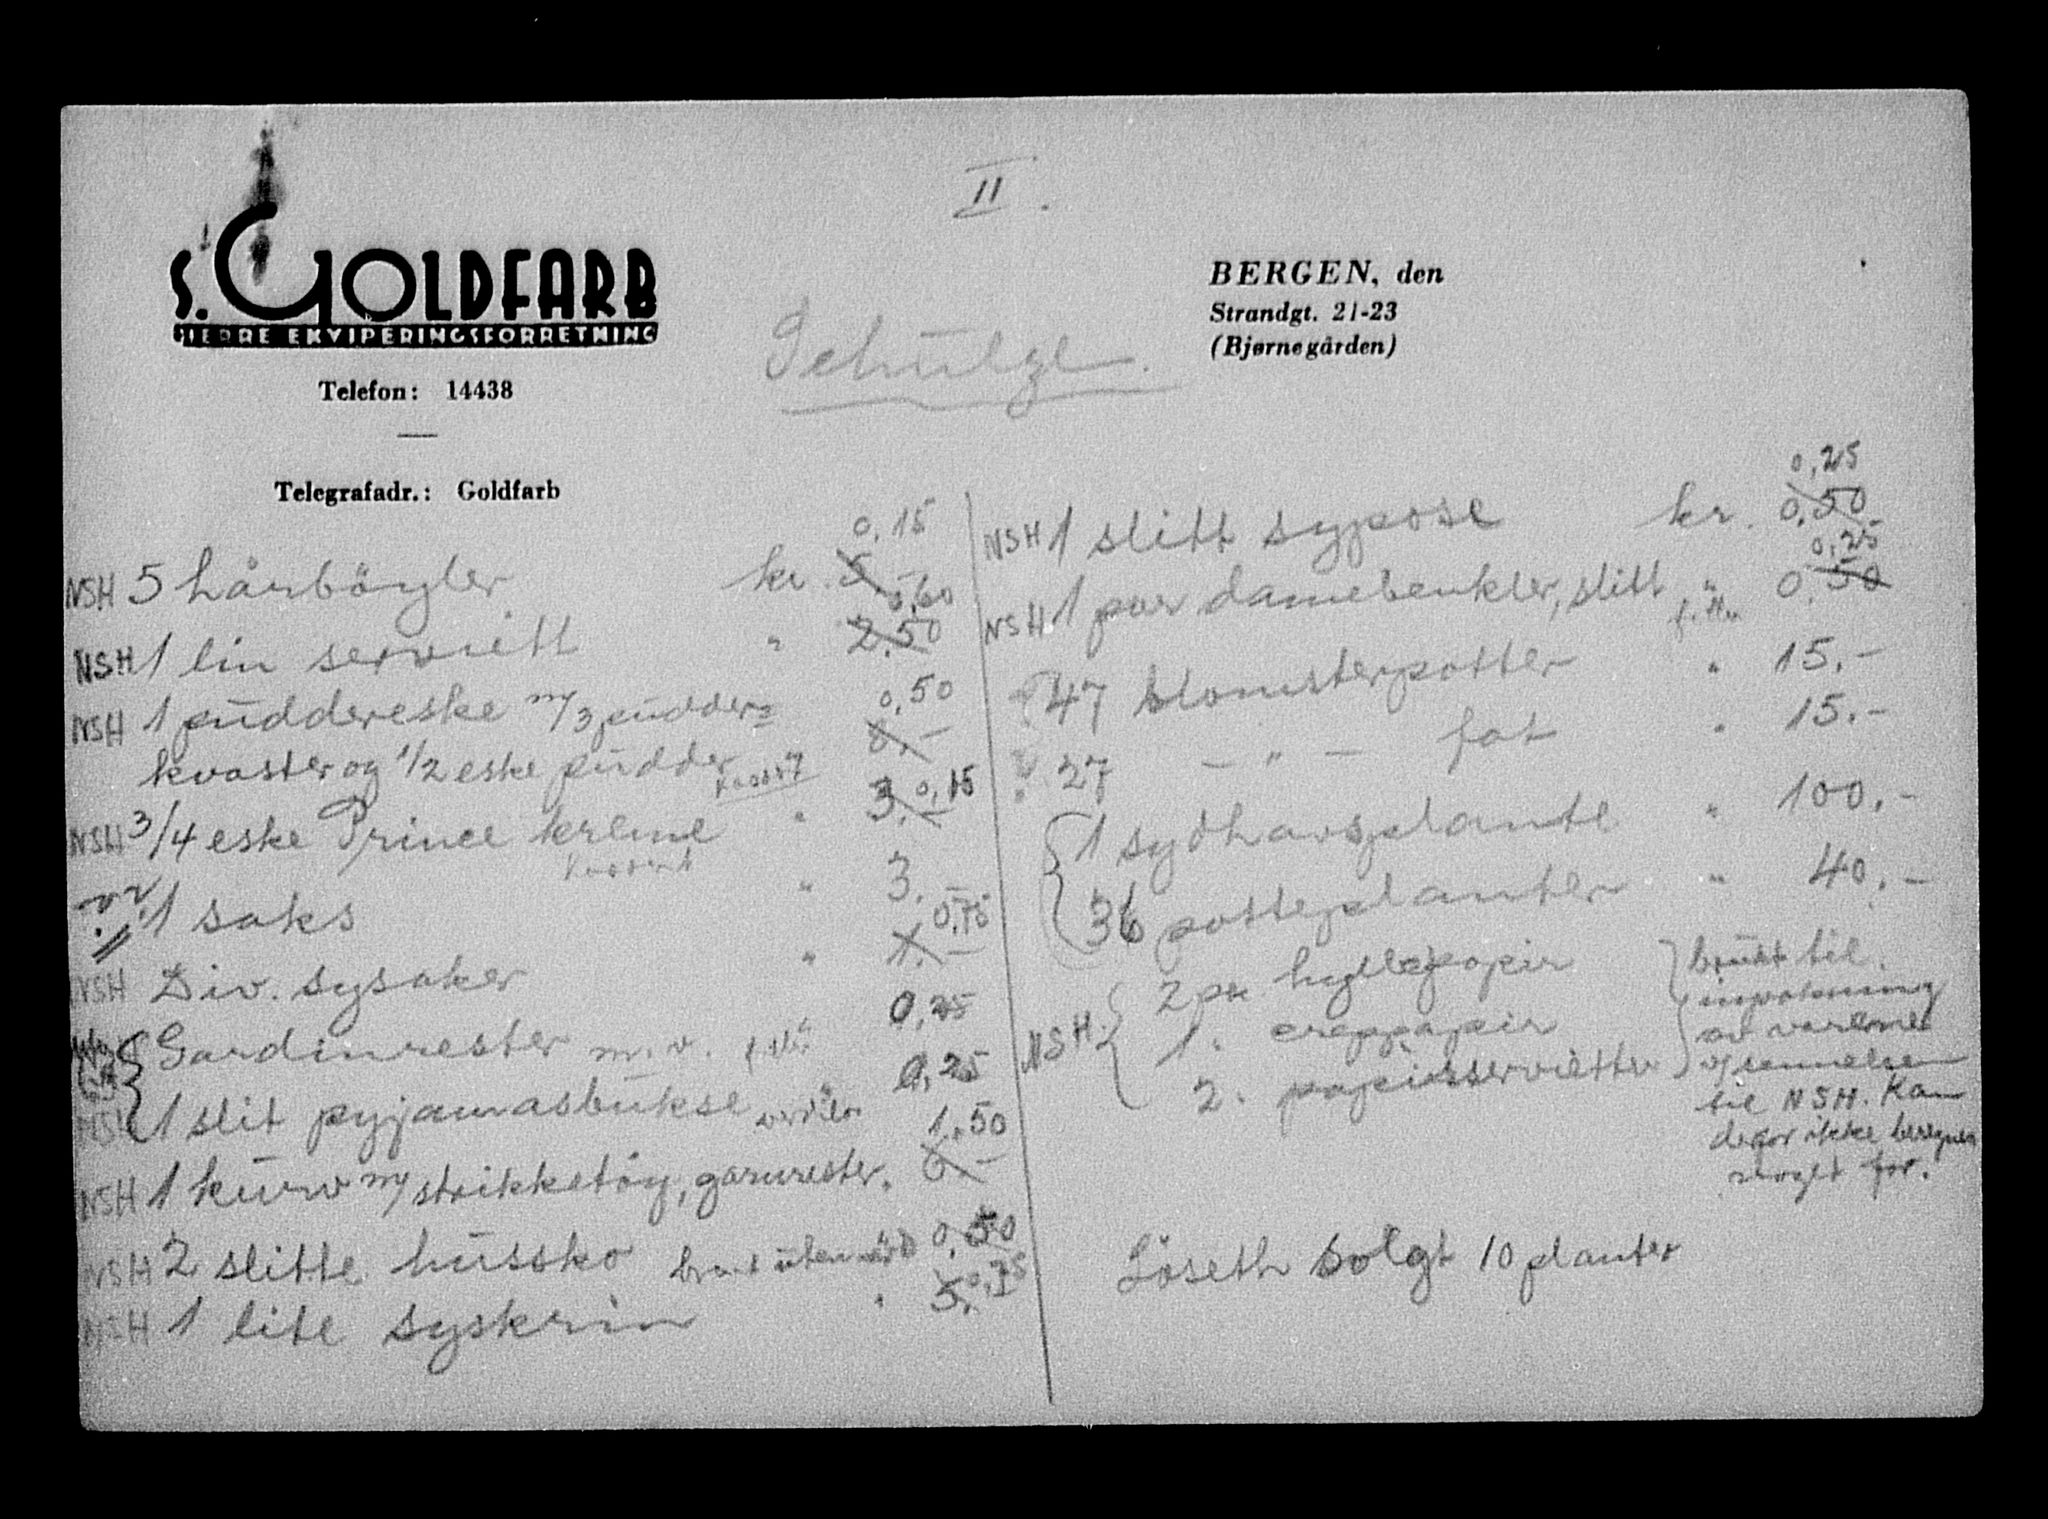 II.
S. GOLDFARB
HERRE EKVIPERINGSFORRETNING
Telefon: 14438
Telegrafadr.: Goldfarb
BERGEN, den
Strandgt. 21-23
(Bjørnegården)
Schulze.
0,15
NSH 5 hårbøyler kr. 5
0,60
NSH 1 lin serviett " 2,50
0,50
NSH 1 puddereske m/3 pudder= 8.-
kvaster og 1/2 eske pudder
0,15
NSH 3/4 eske Prince kreme " 3.-
kassert
1 saks " 3.-
0,75
NSH Div. sysaker " 1.-
Gardinrester m.v. 0,25
NSH 1 slit pyjamasbukse 0,25
1,50
NSH 1 kurv m/ strikketøy, garnrester. 6.-
NSH 2 slitte hussko uten verd 0,50
0,75
NSH 1 lite syskrin " 5.-
0,25
NSH 1 slitt sypose kr. 0,50
0,25
NSH 1 par damebenkler, slitt " 0,50
47 blomsterpotter " 15.-
" 27 - " - fat " 15.-
1 sydhavsplante " 100.-
36 potteplanter " 40.-
NSH. 2 pk. hyllepapir
1 " creppapir
2 " papirservietter
brukt til
inpakning
av varene
og sennelsen
til NSH. Kan
derfor ikke beregnes
noget for.
Löseth solgt 10 planter